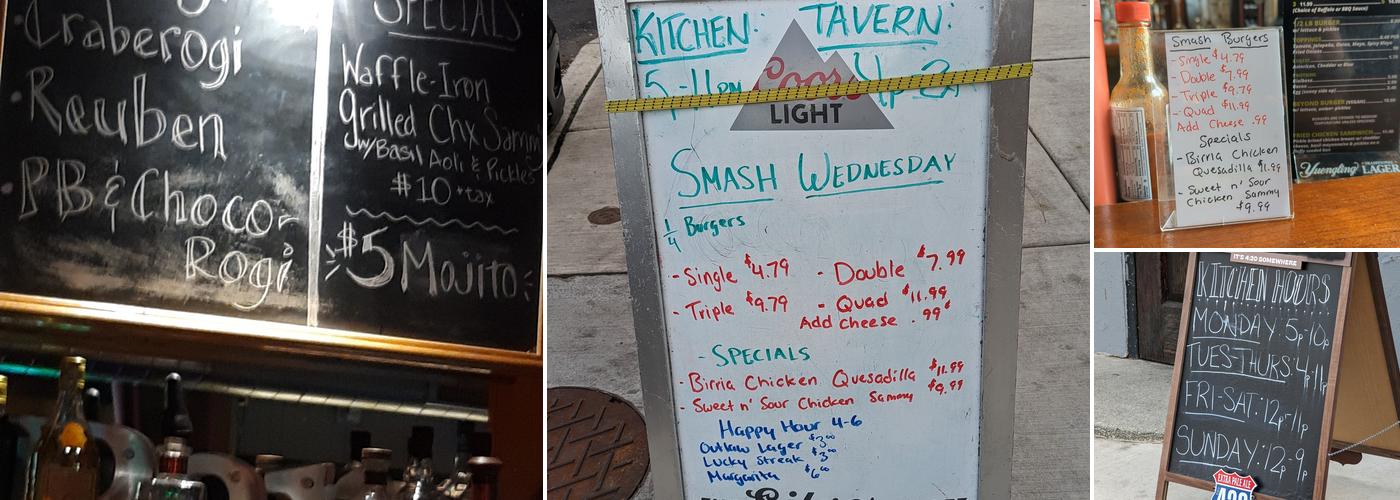 Craberogi
· Reuben
· PB & Choco-
Rogi
SPECIALS
Waffle-Iron
grilled Chx Sammy
w/Basil Aoli & Pickles
$10 +tax
$5 Mojito
KITCHEN: TAVERN:
5-11pm
Coors
LIGHT
SMASH WEDNESDAY
1/4 Burgers
- Single $4.79 - Double $7.99
- Triple $9.79 - Quad $11.99
Add cheese .99¢
- SPECIALS
- Birria Chicken Quesadilla $11.99
- Sweet n' Sour Chicken Sammy $9.99
Happy Hour 4-6
Outlaw Lager $3.00
Lucky Streak $3.00
Margarita $6.00
Smash Burgers
- Single $4.79
- Double $7.99
- Triple $9.79
- Quad $11.99
Add Cheese .99
Specials
- Birria Chicken
Quesadilla $11.99
- Sweet n' Sour
Chicken Sammy
$9.99
(Choice of Buffalo or BBQ Sauce)
1/2 LB BURGER
w/ lettuce & pickles
TOPPINGS
BEYOND BURGER (VEGAN)
FRIED CHICKEN SANDWICH
Yuengling LAGER
IT'S 4:20 SOMEWHERE
KITCHEN HOURS
MONDAY: 5p-10p
TUES-THURS: 4p-11p
FRI-SAT: 12p-11p
SUNDAY: 12p-9p
EXTRA PALE ALE
420